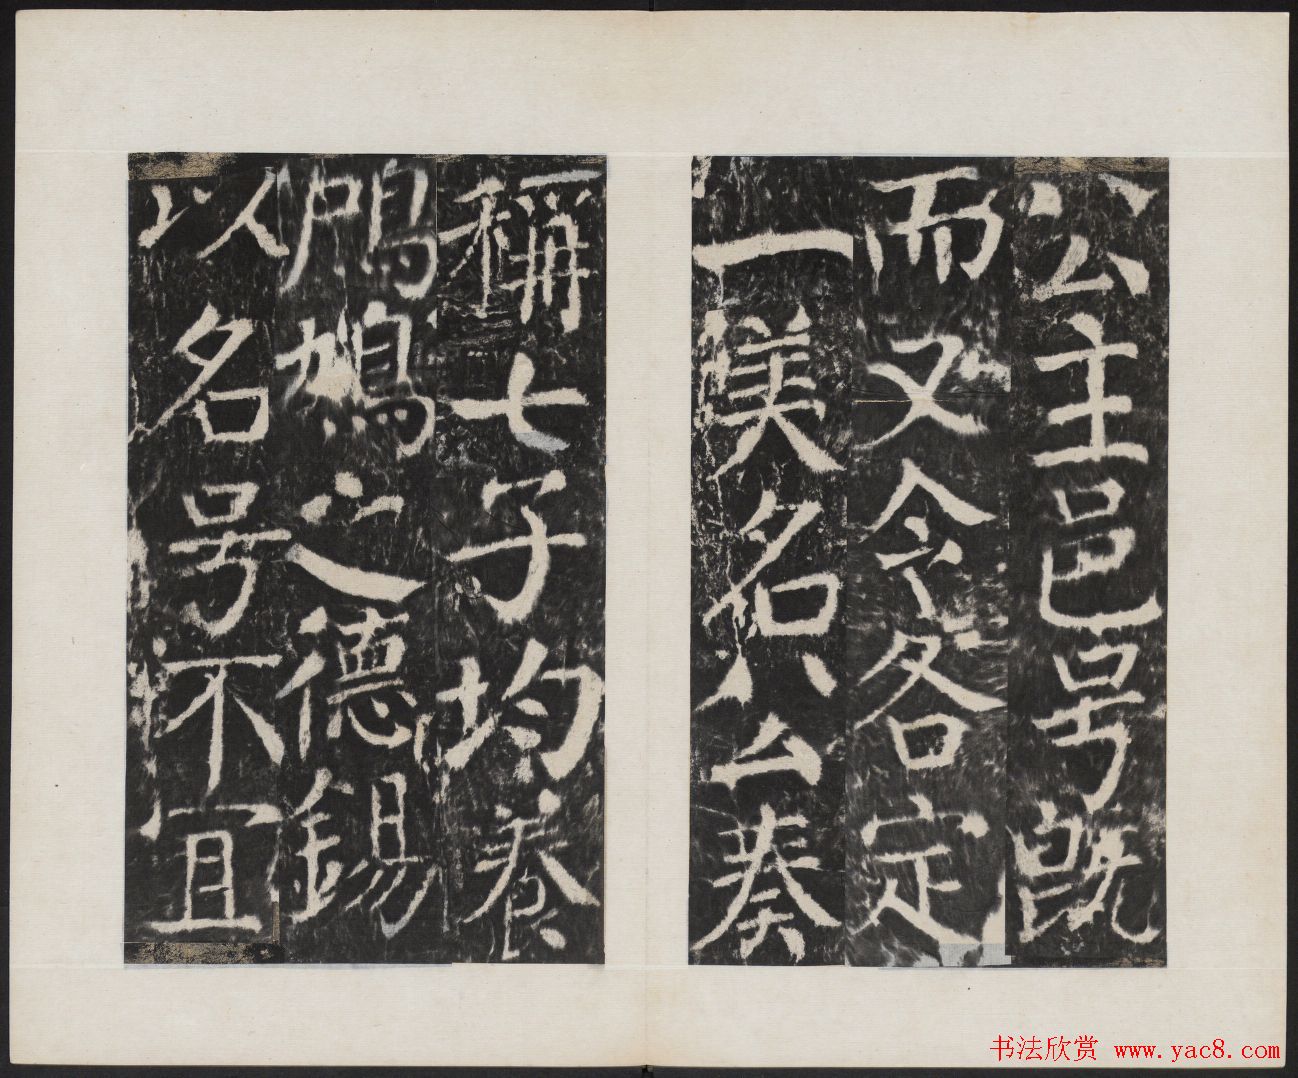 公主邑号既
而又令各定
一美名公奏
稱七子均養
鳲鳩之德錫
以名号不宜
书法欣赏 www.yac8.com